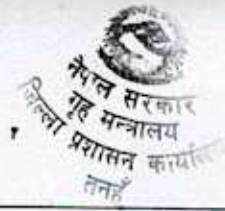 नेपाल सरकार
गृह मन्त्रालय
जिल्ला प्रशासन
तनहुँ